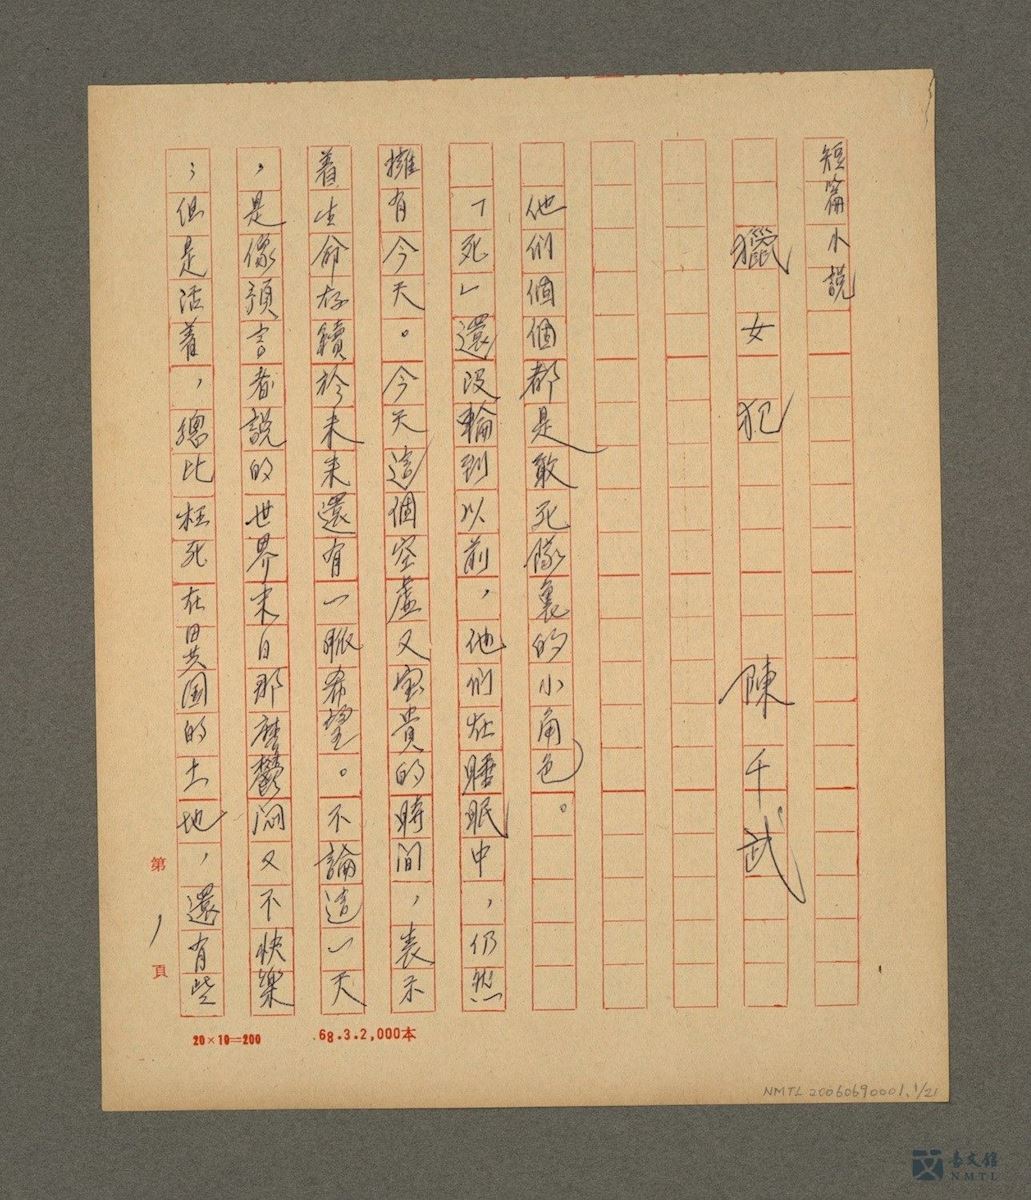 短篇小說
獵女犯 陳千武
他們個個都是敢死隊裏的小角色。
「死」還没輪到以前，他們在睡眠中，仍然
擁有今天。今天這個空虛又宝貴的時间，表示
着生命存續於未来還有一脈希望。不論這一天
，是像預言者說的世界末日那麼鬱悶又不快樂
；但是活着，總比枉死在異国的土地，還有些
第1頁
20×10=200 68.3.2,000本
NMTL 20060690001, 1/21
台文館
NMTL